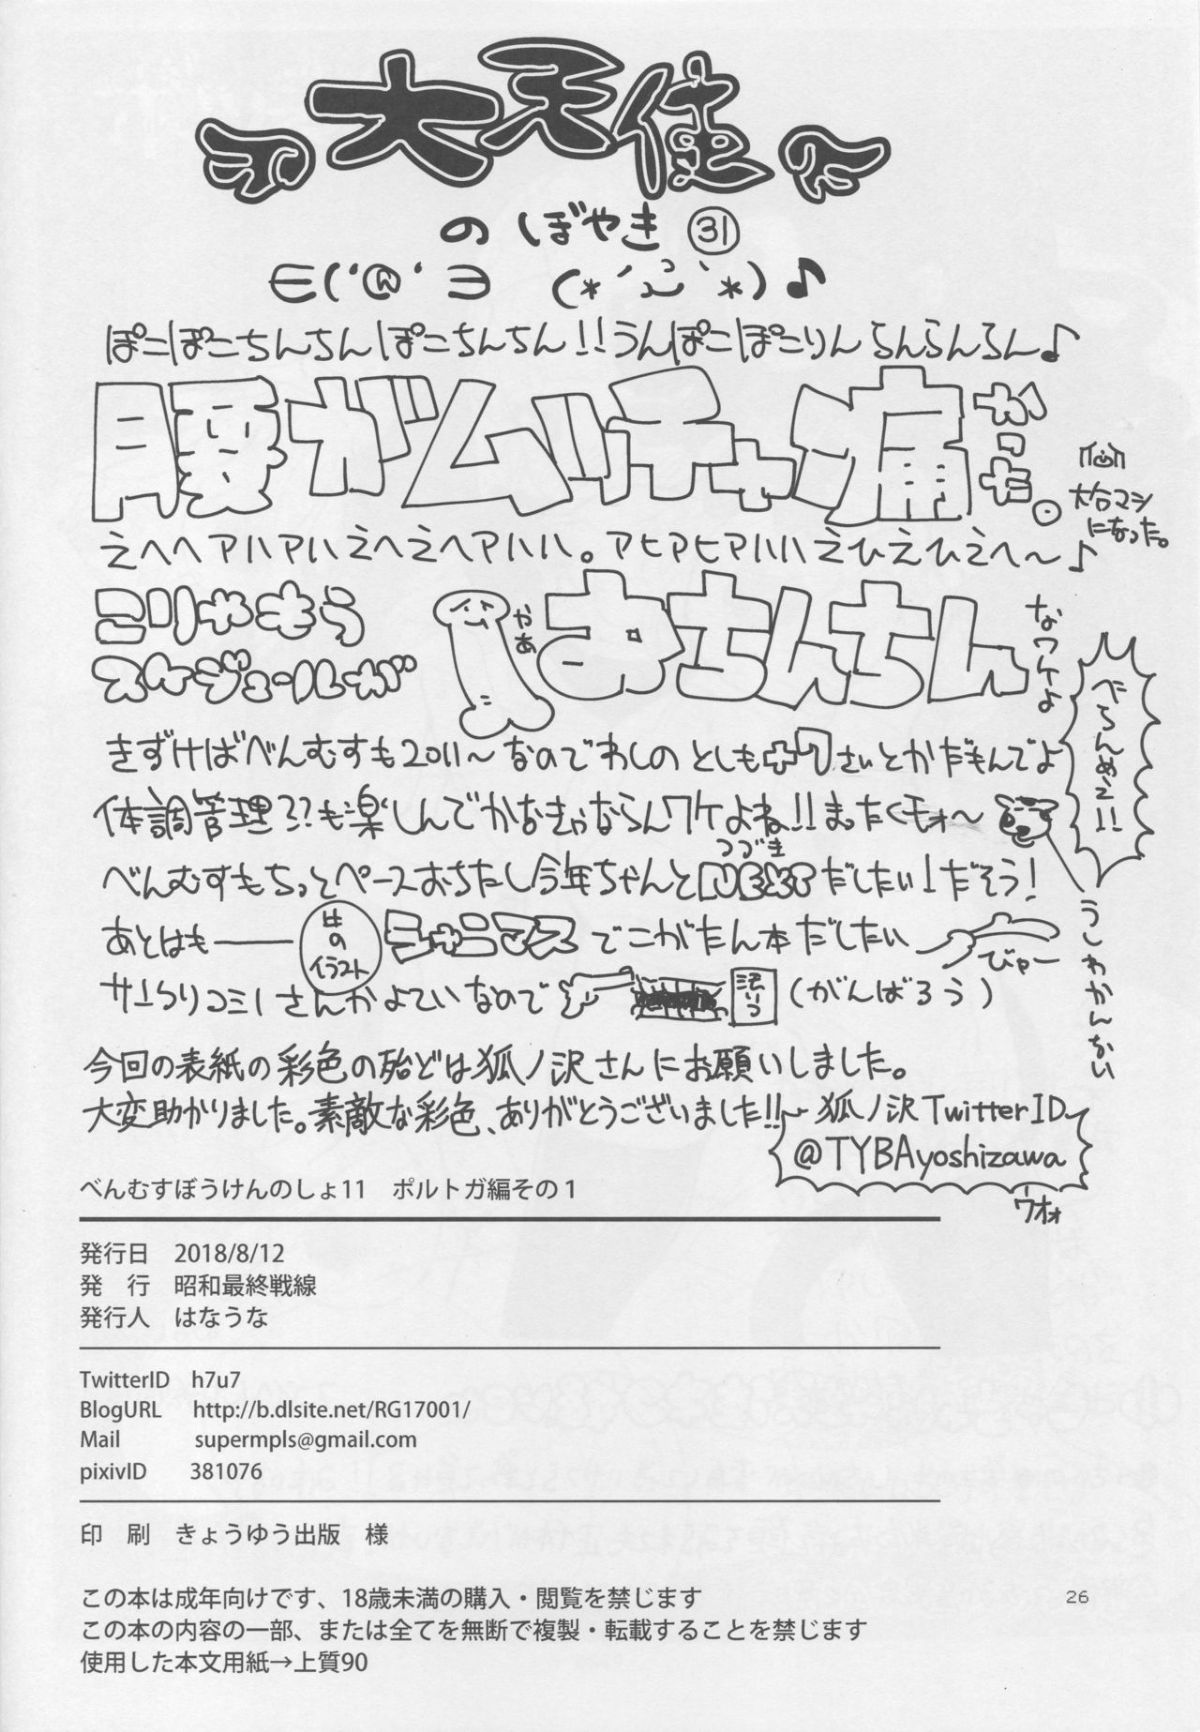 大天使
の ぼやき ㉛
∈('@'∋ (*´ω`*)♪
ぽこぽこちんちんぽこちんちん!!うんぽこぽこりんらんらんらん♪
腰がムッチャ痛かった。
大分マシ
になった。
えへへアハアハえへえへアハハ。アヒアヒアハハえひえひえへ〜♪
こりゃもう
スケジュールが
やあ
おちんちん
なワケよ
べらんめえ!!
きずけばべんむすも2011〜なのでわしのとしも+7さいとかだもんでよ
体調管理??も楽しんでかなきゃならんワケよね!!まったくモォ〜
べんむすもちっとペースおちたし今年ちゃんとNEXTだしたい!だそう!
つづき
うしわかんない
あとはも――
牛の
イラスト
シャニマスでこがたん本だしたい
びゃー
サーくりコミ1さんかよていなので
(がんばろう)
今回の表紙の彩色の殆どは狐ノ沢さんにお願いしました。
大変助かりました。素敵な彩色、ありがとうございました!!〜狐ノ沢TwitterID
@TYBAyoshizawa
ウオォ
べんむすぼうけんのしょ11 ポルトガ編その1
発行日 2018/8/12
発 行 昭和最終戦線
発行人 はなうな
TwitterID h7u7
BlogURL http://b.dlsite.net/RG17001/
Mail supermpls@gmail.com
pixivID 381076
印 刷 きょうゆう出版 様
この本は成年向けです、18歳未満の購入・閲覧を禁じます
この本の内容の一部、または全てを無断で複製・転載することを禁じます
使用した本文用紙→上質90
26